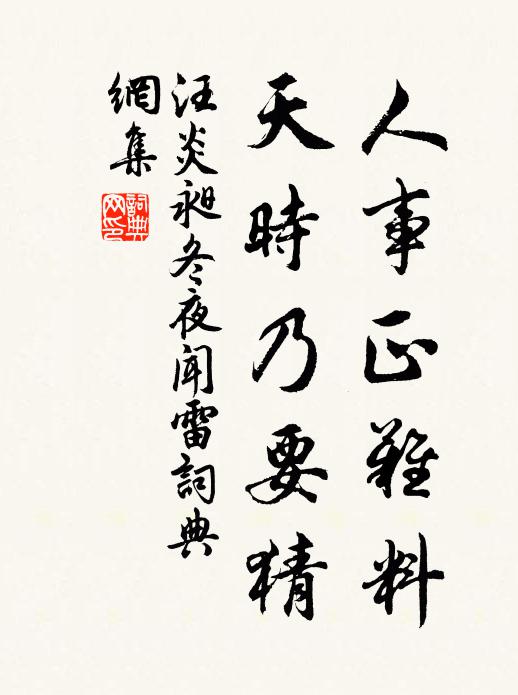 人事正難料
天時乃要猜
汪炎昶冬夜聞雷詞典
網集
詞典网印